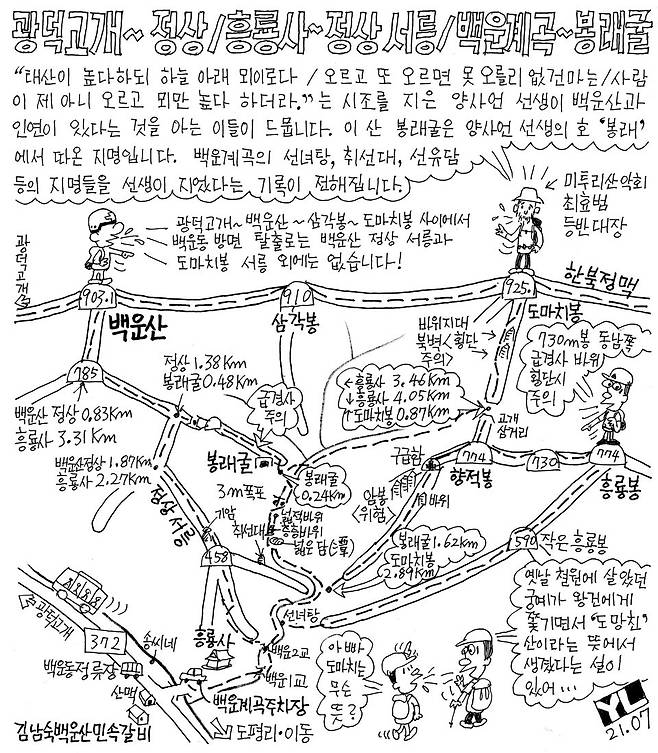 광덕고개~정상/흥룡사~정상 서릉/백운계곡~봉래굴
"태산이 높다하되 하늘 아래 뫼이로다 / 오르고 또 오르면 못 오를리 없건마는/사람
이 제 아니 오르고 뫼만 높다 하더라."는 시조를 지은 양사언 선생이 백운산과
인연이 있다는 것을 아는 이들이 드뭅니다. 이 산 봉래굴은 양사언 선생의 호 '봉래'
에서 따온 지명입니다. 백운계곡의 선녀탕, 취선대, 선유담
등의 지명들을 선생이 지었다는 기록이 전해집니다.
미투리산악회
최효범
등반대장
광덕고개~백운산~삼각봉~도마치봉 사이에서
백운동 방면 탈출로는 백운산 정상 서릉과
도마치봉 서릉 외에는 없습니다!
광덕고개
903.1
백운산
910
삼각봉
925.
도마치봉
한북정맥
바위지대
북벽<횡단
주의>
730m봉 동남쪽
급경사 바위
횡단시
주의
785
정상 1.38Km
봉래굴 0.48Km
급경사
주의
←흥룡사 3.46Km
↓흥룡사 4.05Km
↑도마치봉 0.87Km
고개
삼거리
백운산 정상 0.83Km
흥룡사 3.31Km
백운산정상 1.87Km
흥룡사 2.27Km
봉래굴
봉래굴
0.24Km
구급함
774
향적봉
730
774
흥룡봉
정상 서릉
3m폭포
기암
취선대
넓적바위
층층바위
넓은 담(潭)
암봉
<위험>
바위
458
봉래굴 1.62Km
도마치봉
2.89Km
590
작은 흥룡봉
선녀탕
흥룡사
백운2교
백운1교
백운계곡주차장
광덕고개
372
송씨네
백운동정류장
산맥
김남숙백운산민속갈비
도평리·이동
아빠
도마치는
무슨
뜻?
옛날 철원에 살았던
궁예가 왕건에게
쫓기면서 '도망친'
산이라는 뜻에서
생겼다는 설이
있어…
YL
21.07